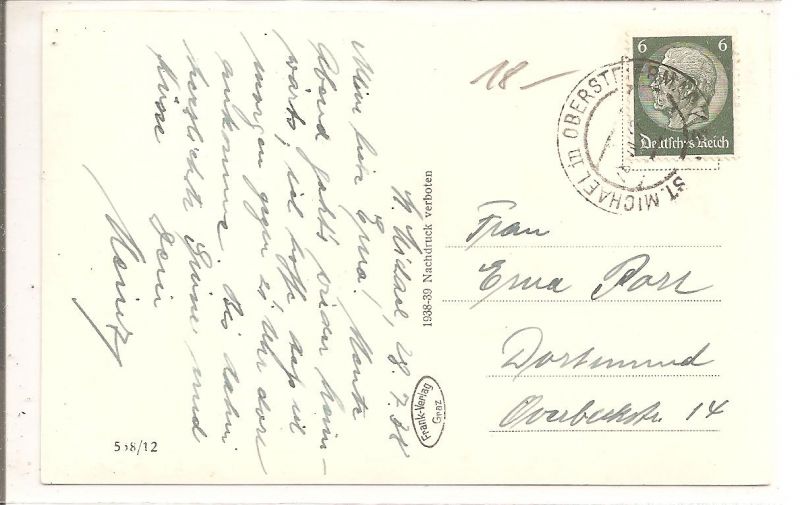 St. Michael, 28.7.38
Meine liebe Erna! Heute
Abend geht's wieder heim-
wärts, ich hoffe daß ich
morgen gegen 20 Uhr dort
ankomme. Bis dahin
herzlichste Grüsse und
Küsse
Dein
Heinz
1938-39 Nachdruck verboten
Frank-Verlag
Graz
18-
6 6
Deutsches Reich
ST. MICHAEL in OBERSTEIERMARK
Frau
Erna
Dortmund
Overbeckstr 14
518/12